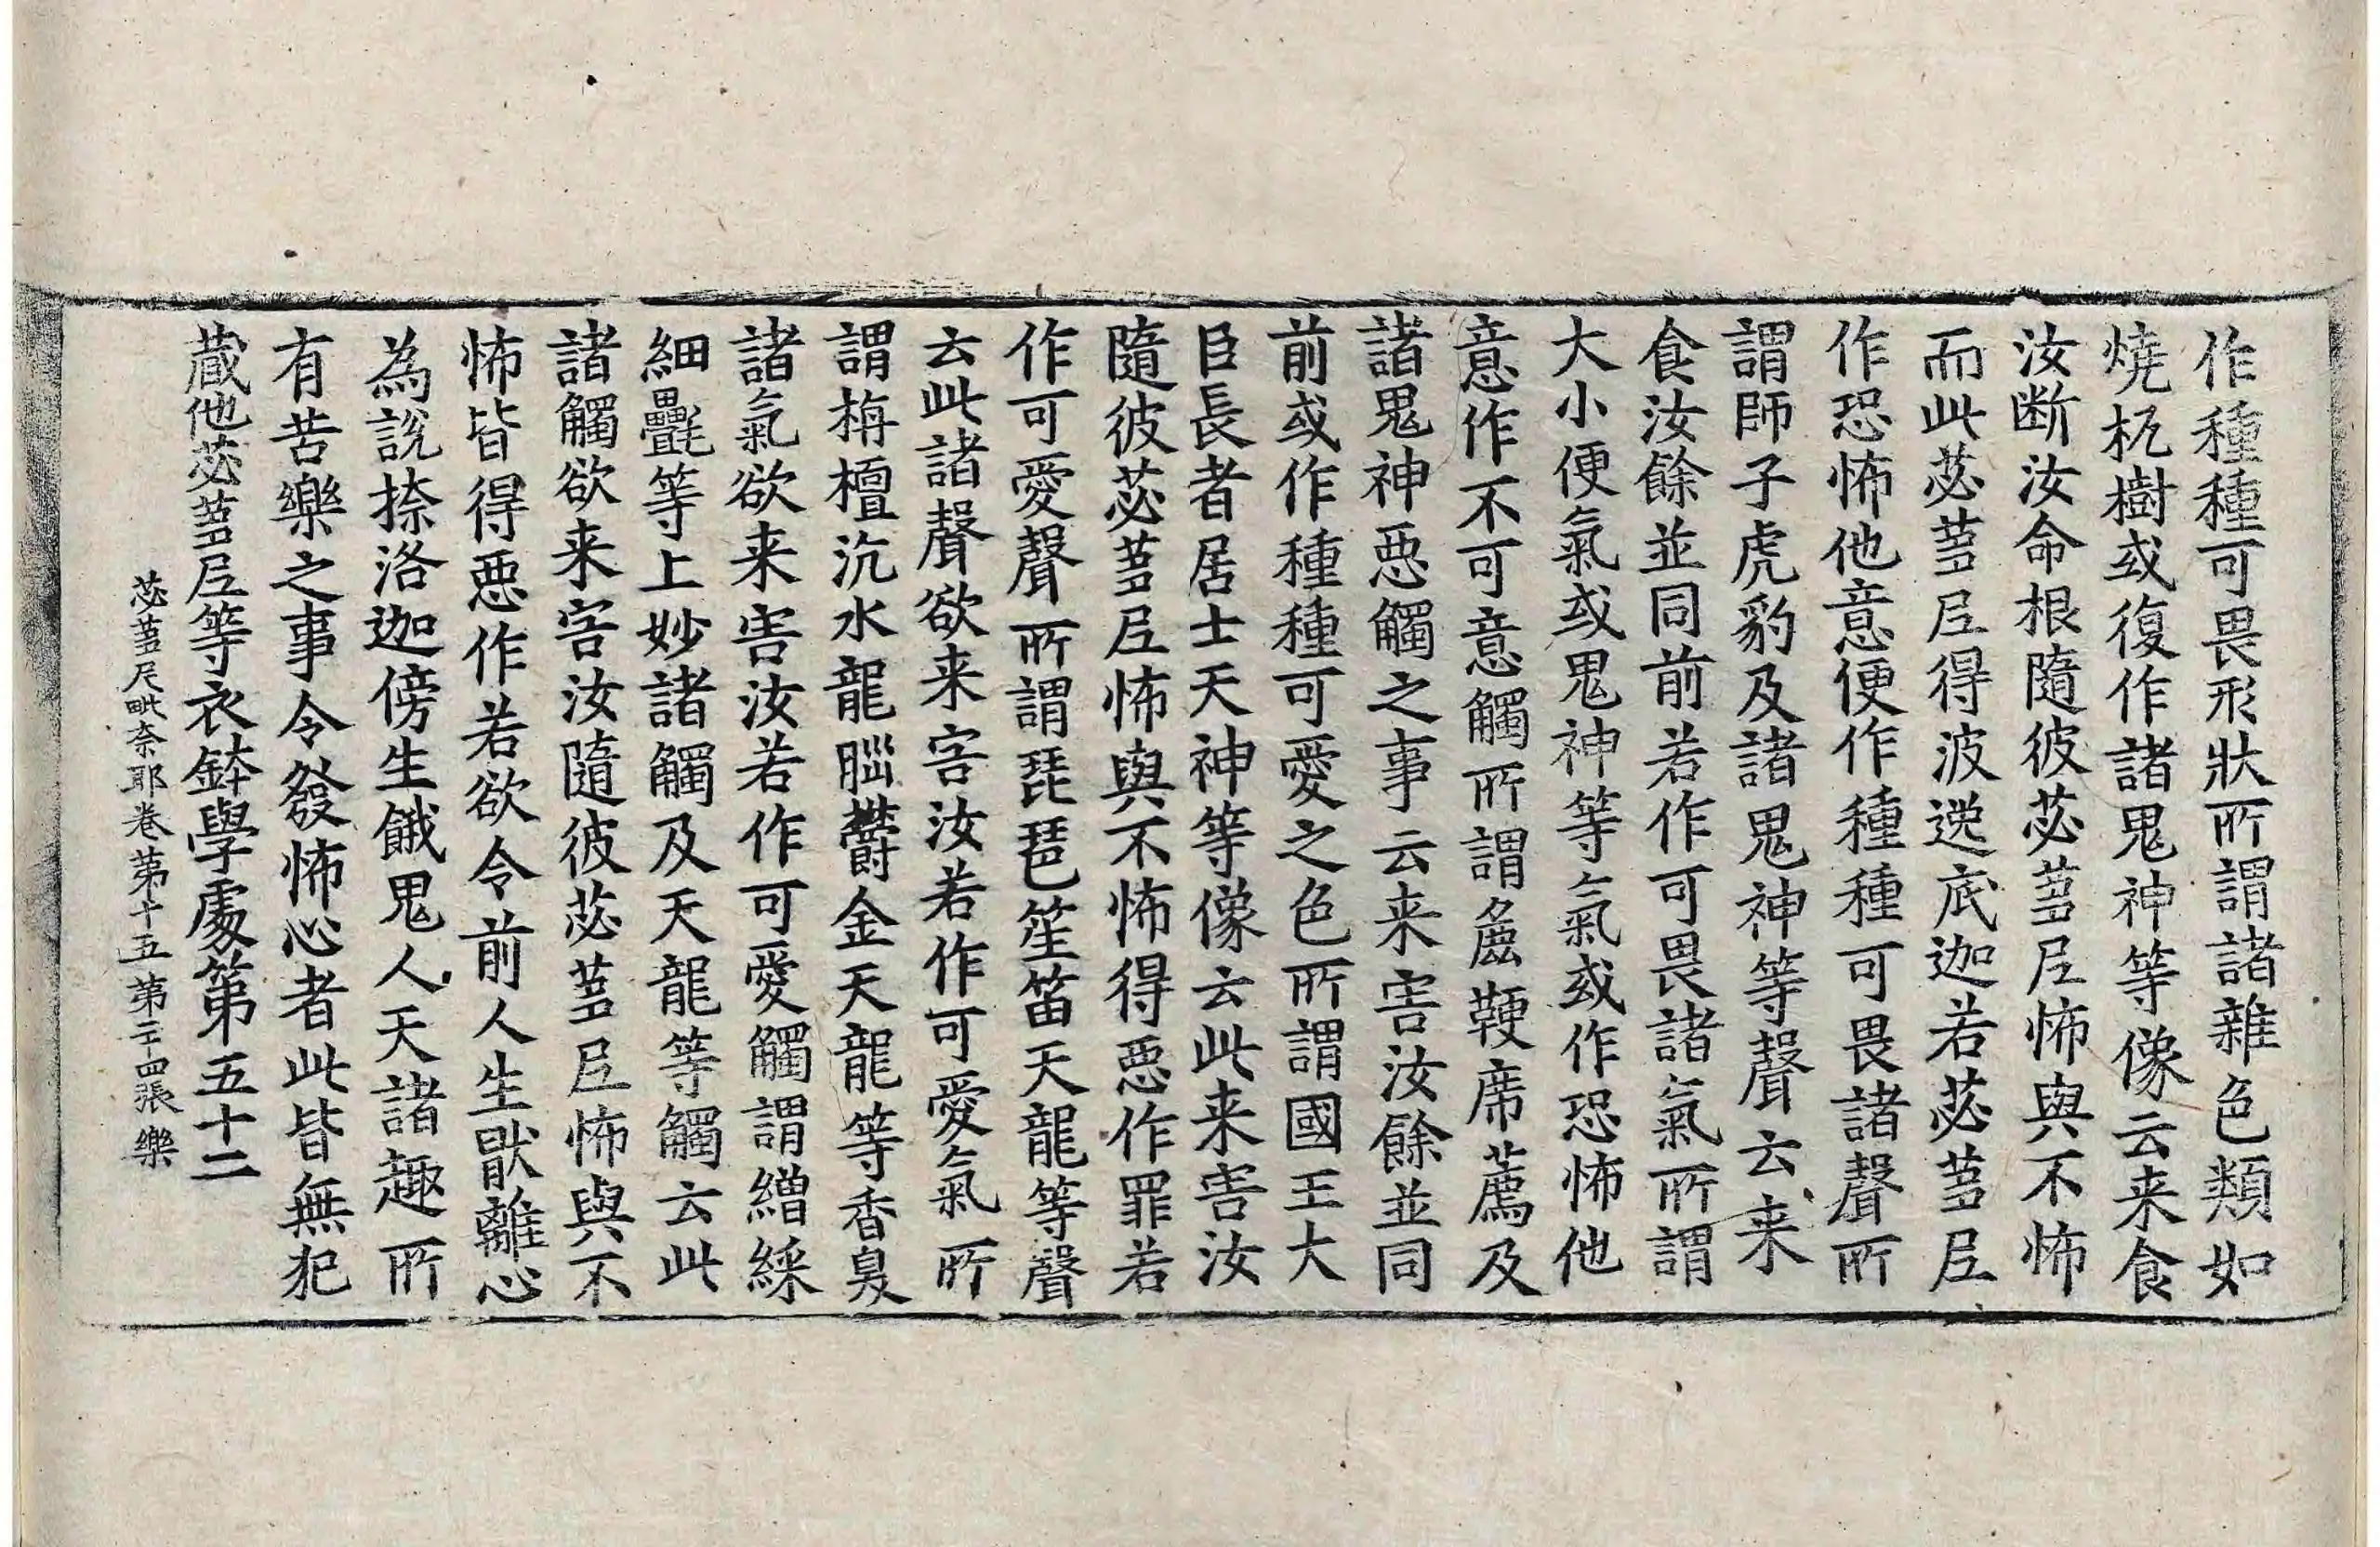 作種種可畏形狀所謂諸雜色類如
燒杌樹或復作諸鬼神等像云来食
汝断汝命根隨彼苾蒭𡰱怖與不怖
而此苾蒭𡰱得波逸底迦若苾蒭𡰱
作恐怖他意便作種種可畏諸聲所
謂師子虎豹及諸鬼神等聲云来
食汝餘並同前若作可畏諸氣所謂
大小便氣或鬼神等氣或作恐怖他
意作不可意觸所謂麁鞕席薦及
諸鬼神惡觸之事云来害汝餘並同
前或作種種可愛之色所謂國王大
臣長者居士天神等像云此来害汝
隨彼苾蒭𡰱怖與不怖得惡作罪若
作可愛聲所謂琵琶笙笛天龍等聲
云此諸聲欲来害汝若作可愛氣所
謂栴檀沉水龍腦欝金天龍等香臭
諸氣欲来害汝若作可愛觸謂繒綵
細㲲等上妙諸觸及天龍等觸云此
諸觸欲来害汝隨彼苾蒭𡰱怖與不
怖皆得惡作若欲令前人生猒離心
為說捺洛迦傍生餓鬼人天諸趣所
有苦樂之事令發怖心者此皆無犯
藏他苾蒭𡰱等衣鉢學處第五十二
苾蒭尼毗奈耶卷第十五 第二十四張 樂